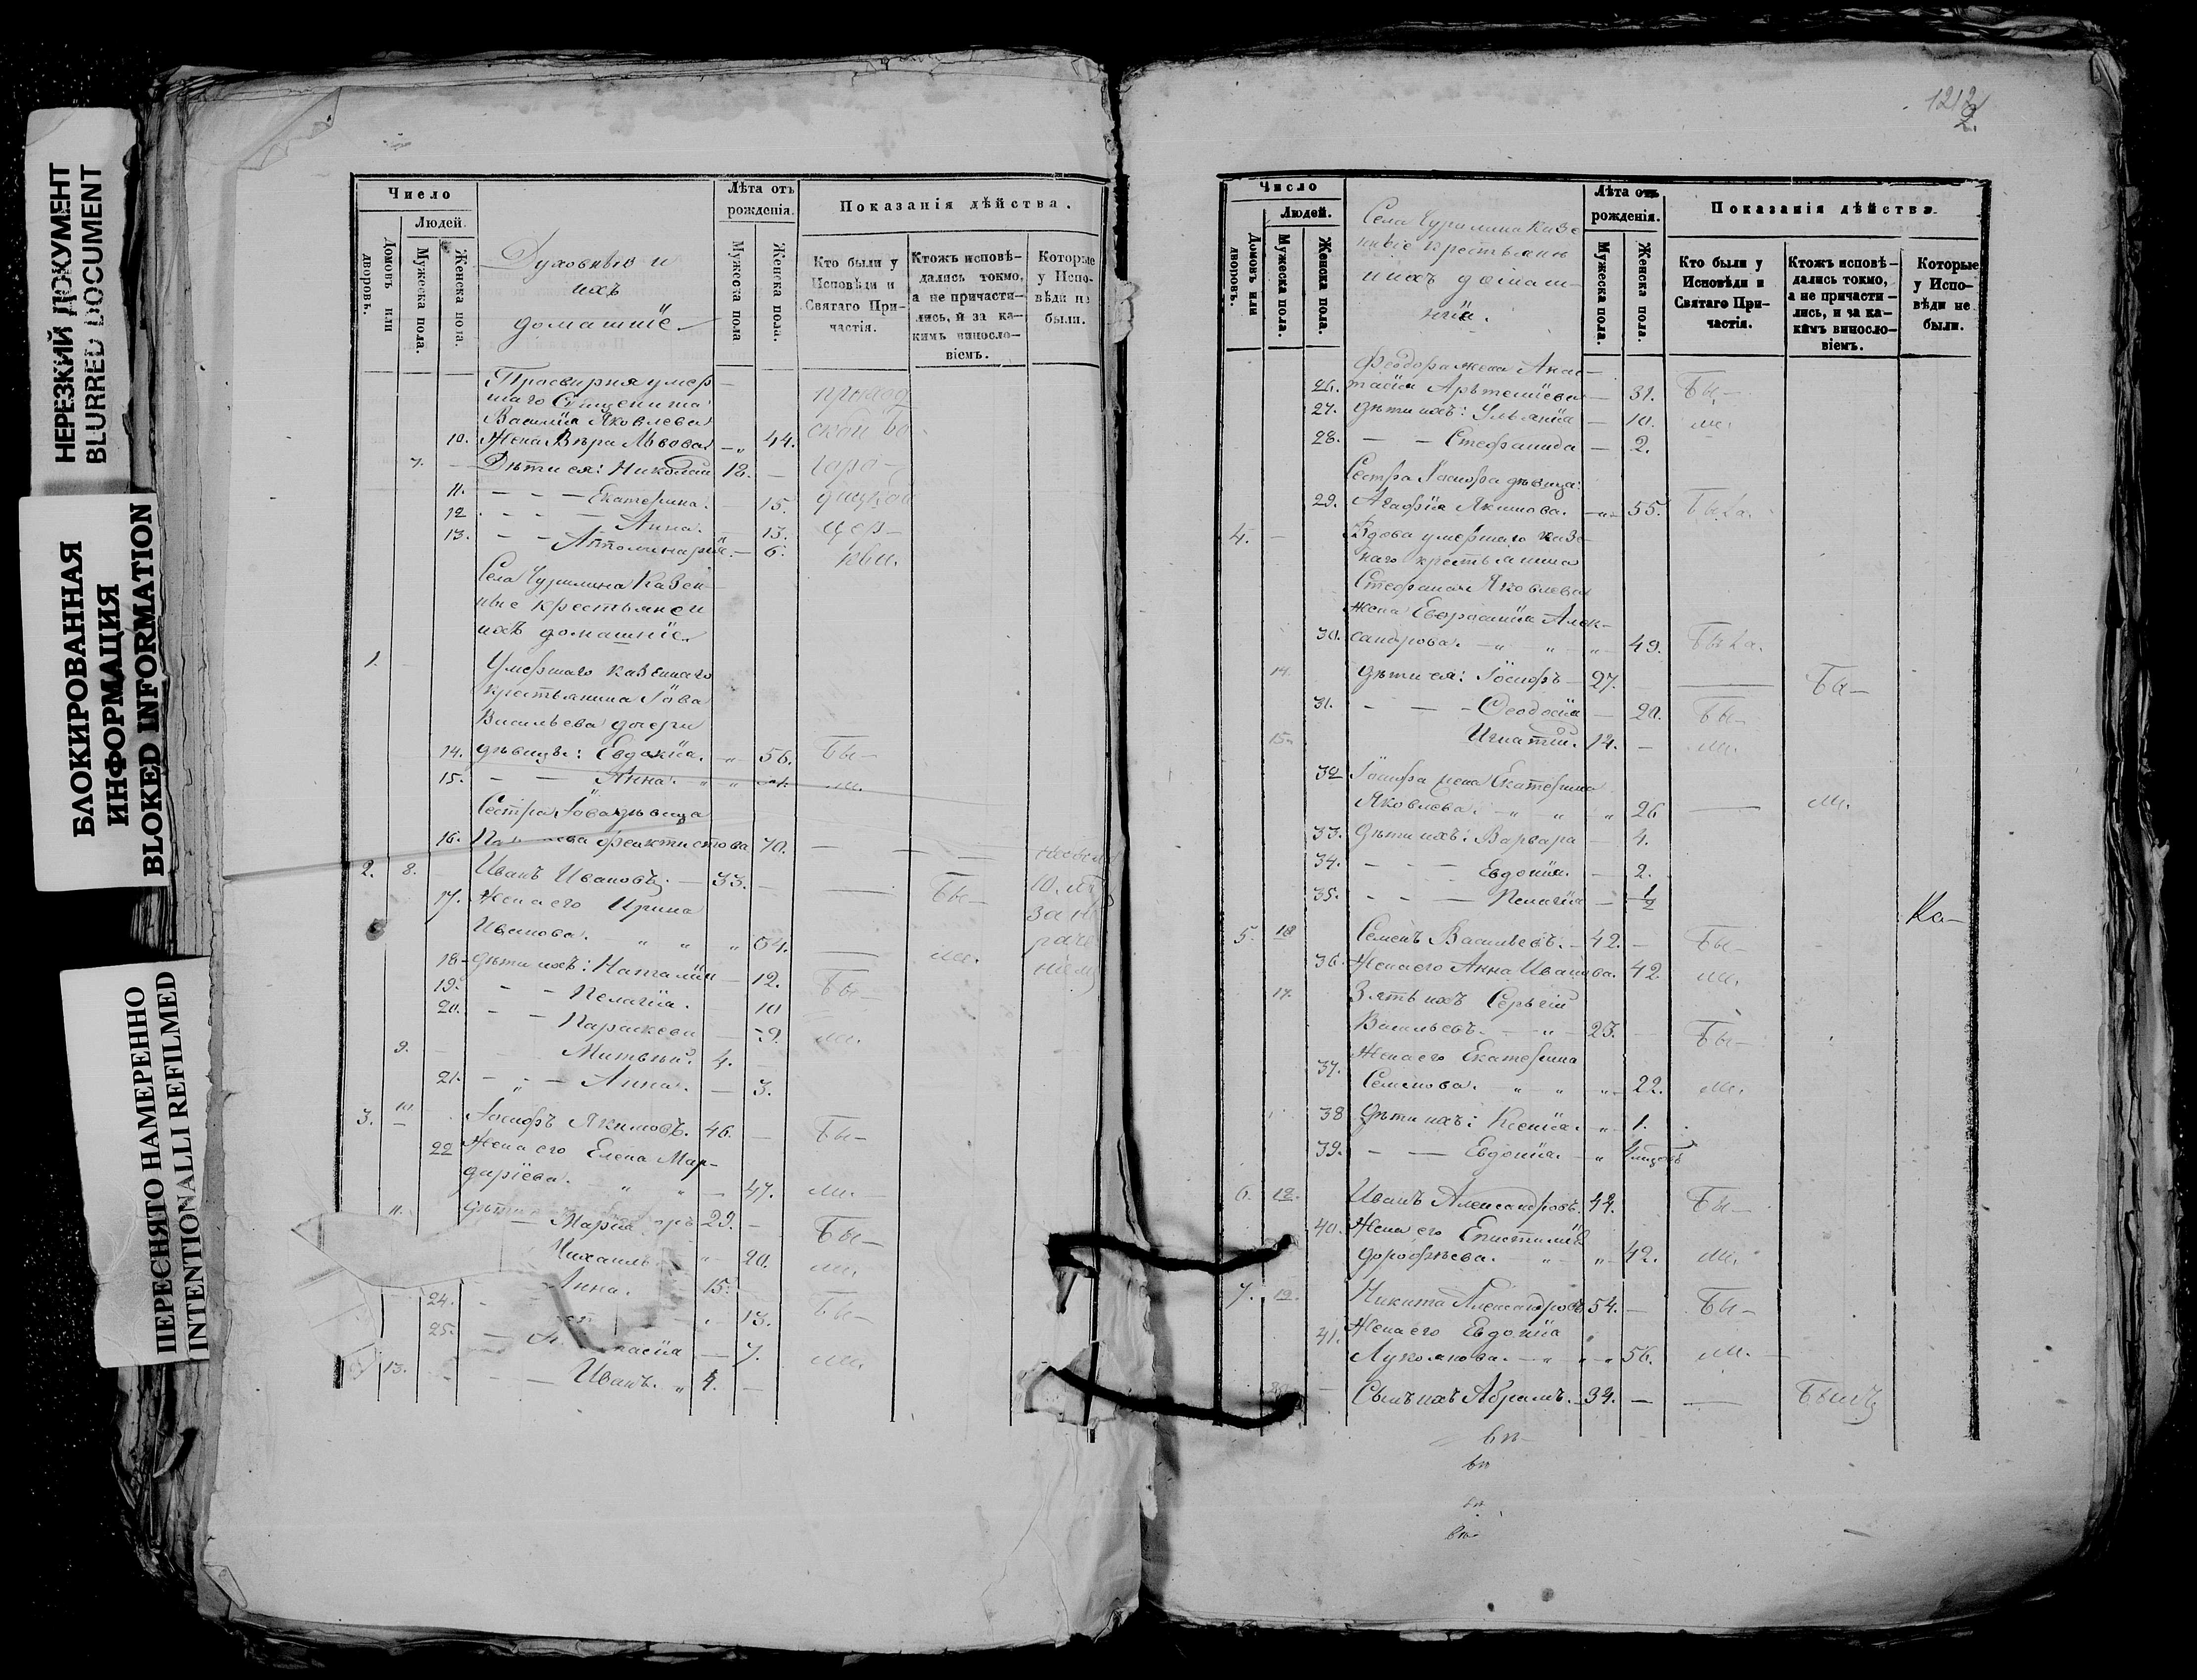 НЕРЕЗКИЙ ДОКУМЕНТ
BLURRED DOCUMENT
БЛОКИРОВАННАЯ
ИНФОРМАЦИЯ
BLOKED INFORMATION
ПЕРЕСНЯТО НАМЕРЕННО
INTENTIONALLI REFILMED
Число
Людей.
Домовъ или дворовъ.
Мужеска пола.
Женска пола.
Духовныя и
ихъ
домашніе.
Лѣта отъ
рожденія.
Мужеска пола
Женска пола.
Показанія дѣйства.
Кто были у
Исповѣди и
Святаго При-
частія.
Ктожъ исповѣ-
дались токмо,
а не причасти-
лись, и за ка-
кимъ виносло-
віемъ.
Которые
у Испо-
вѣди не
были.
Просвирня умер-
шаго Священника
Василія Яковлева
10. Жена Вѣра Львова - „ 44.
7. - Дѣти ея: Николай 18. -
11. - - - Екатерина. - 15.
12 - - - Анна. - 13.
13. - - Апполинарія. - 6.
Села Чурилина Казен-
ные крестьяне и
ихъ домашніе.
1. Умершаго казеннаго
крестьянина Іова
Васильева дочери
14. дѣвицы: Евдокія. „ 56. Бы-
15. - - Анна. „ „ ли.
Сестра Іова дѣвица
16. Феоктистова 70. - - -
2. 8. Иванъ Ивановъ. - 33. - - Бы-
17. Жена его Ирина
Иванова. „ „ „ 34. - ли.
18. дѣти ихъ: Наталія - 12. Бы-
19. - - Пелагія. - 10
20. - - Параскева - 9. ли.
9. - Митвѣй. 4. -
21. - „ - Анна. - 3.
3. 10. Іосифъ Якимовъ. 46. - Бы-
22 Жена его Елена Мар-
даріева. „ „ - 47. ли. -
11. дѣти 29. - Бы-
- Марія
Михаилъ „ 20. ли.
24. - Анна. 15.
- 13. Бы-
25. - - 7. ли.
13. - - - Иванъ. „ 4. -
1212
2.
Число
Людей.
Домовъ или дворовъ.
Мужеска пола.
Женска пола.
Села Чурилина Казе
нные крестьяне
и ихъ домаш-
нія.
Лѣта отъ
рожденія.
Мужеска пола.
Женска пола.
Показанія дѣйства.
Кто были у
Исповѣди и
Святаго При-
частія.
Ктожъ исповѣ-
дались токмо,
а не причасти-
лись, и за ка-
кимъ виносло-
віемъ.
Которые
у Испо-
вѣди не
были.
Феодора жена Анас-
26. тасія Артеміева - 31. Бы-
27. дѣти ихъ: Ульянія - 10. ли.
28. - - Стефанида - 2.
Сестра Іосифа дѣвица:
29. Агафія Якимова. - „ - 55. Была.
4. - Вдова умершаго казе-
наго крестьянина
Стефана Яковлева
жена Евфросинія Алек-
30. сандрова. - „ „ „ 49. Была.
14. дѣти ея: Іосифъ - 27. - Бы-
31. - - - Феодосія - 20. Бы-
15. Игнатій. 14. - ли.
32 Іосифа жена Екатерина
Яковлева. - „ „ „ 26 - ли.
33. дѣти ихъ: Варвара - 4.
34. - - - Евдокія. - 2.
35. - - - Пелагія - 1/2
5. 16 Семенъ Васильевъ. - 42. - Бы-
36. Жена его Анна Иванова. 42. ли.
17. Зять ихъ Сергій
Васильевъ. - „ - 23. Бы-
37. Жена его Екатерина
Семенова. „ „ „ 22. ли.
38 дѣти ихъ: Ксенія. - „ 1.
39. - - Евдокія. - „
6. 18. Иванъ Александровъ. 44. Бы-
40. Жена его Епистимія
Дорофѣева. „ „ 42. ли.
7. 19. Никита Александровъ 54. - Бы-
41. Жена его Евдокія
Лукоянова. - „ „ - 56. ли. -
- Сынъ ихъ Абрамъ. 34. - - Былъ